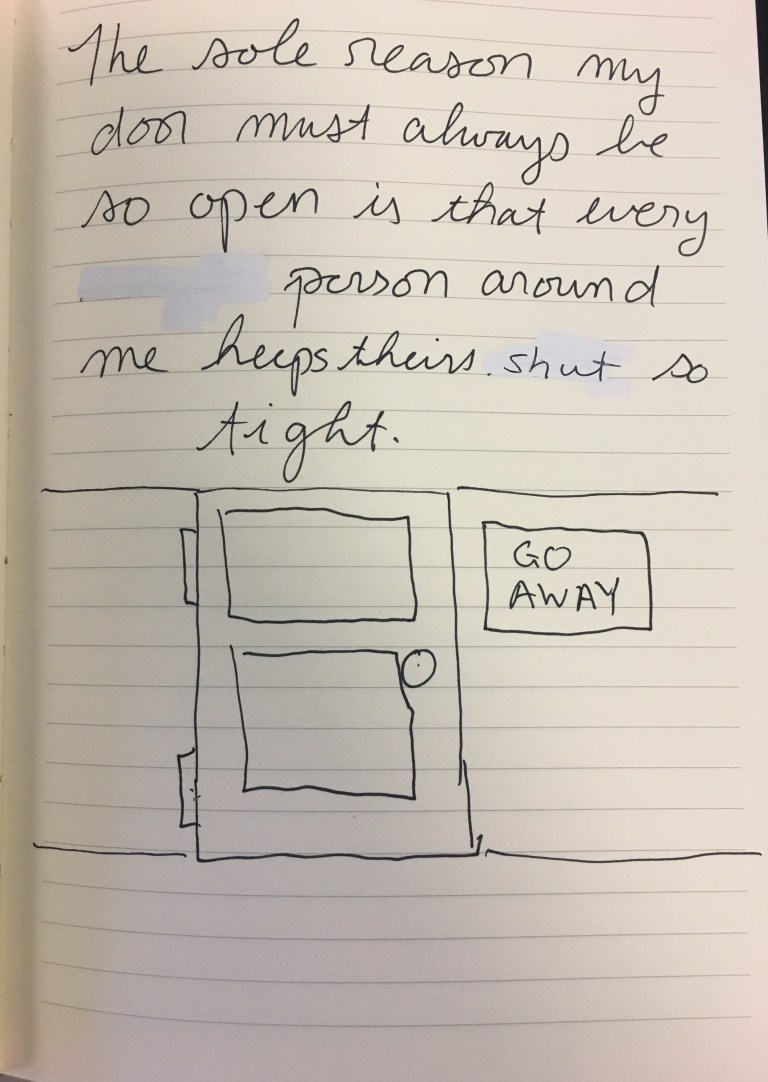 The sole reason my
door must always be
so open is that every
person around
me keeps theirs shut so
tight.
GO
AWAY